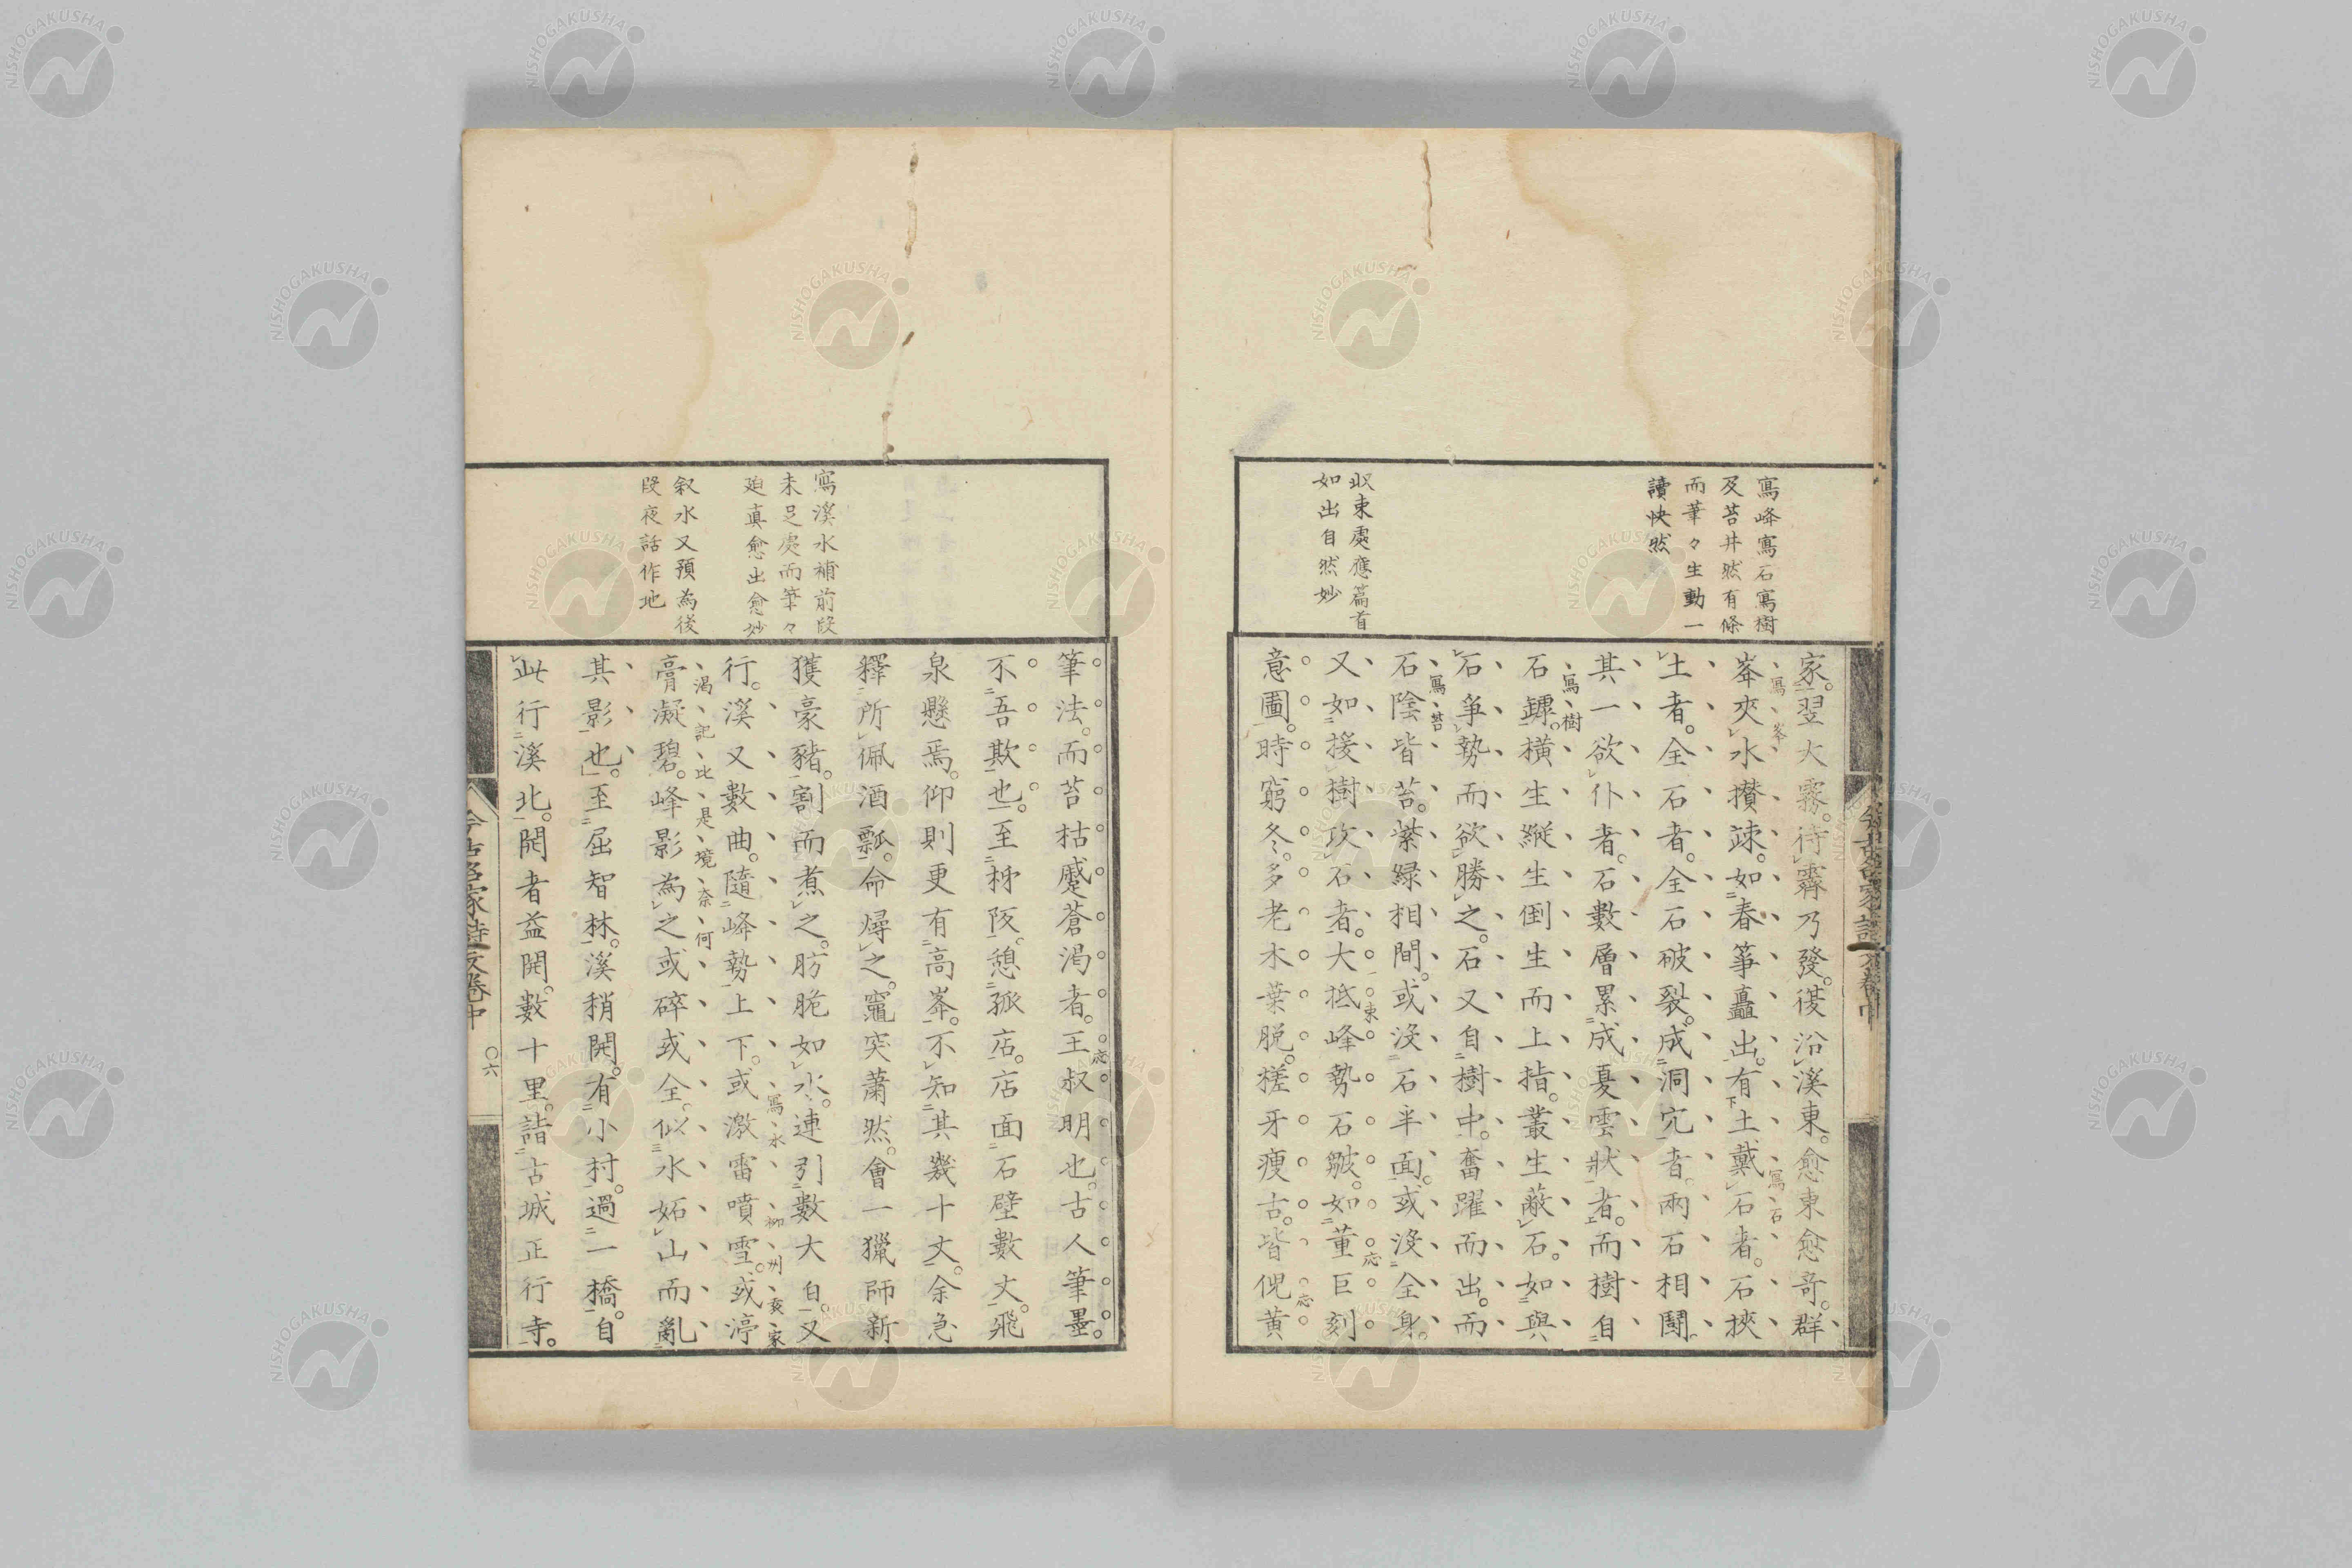 寫峰寫石寫樹
及苔井然有條
而筆々生動一
讀快然
收束處應篇首
如出自然妙
家。翌大霧。待霽乃發。復沿溪東。愈東愈奇。群
峯夾水攅竦。如春筍矗出。有土戴石者。石挾
土者。全石者。全石破裂。成洞穴者。兩石相鬪。
其一欲仆者。石數層累成夏雲狀者。而樹自
石罅。橫生縱生倒生而上指。叢生蔽石。如與
石爭勢而欲勝之。石又自樹中。奮躍而出。而
石陰皆苔。紫緑相間。或沒石半面。或沒全身。
又如援樹攻石者。大抵峰勢石皴。如董巨刻
意圖。時窮冬。多老木葉脱。槎牙瘦古。皆倪黃
寫峯
寫石
寫樹
寫苔
一束
応
応
寫溪水補前段
未足處而筆々
逈真愈出愈妙
叙水又預為後
段夜話作地
筆法。而苔枯蹙蒼渇者。王叔明也。古人筆墨。
不吾欺也。至柹阪。憩孤店。店面石壁數丈。飛
泉懸焉。仰則更有高峯。不知其幾十丈。余急
釋所佩酒瓢。命燖之。竈突蕭然。會一獵師新
獲豪豬。割而煮之。肪脆如氷。連引數大白。又
行。溪又數曲。隨峰勢上下。或激雷噴雪。或渟
膏凝碧。峰影為之或碎或全。似水妬山而亂
其影也。至屈智林。溪稍開。有小村。過一橋。自
此行溪北。開者益開。數十里。詣古城正行寺。
応
寫水
柳州亥家
渇記比是境奈何
今古名家詩文卷中
〇六